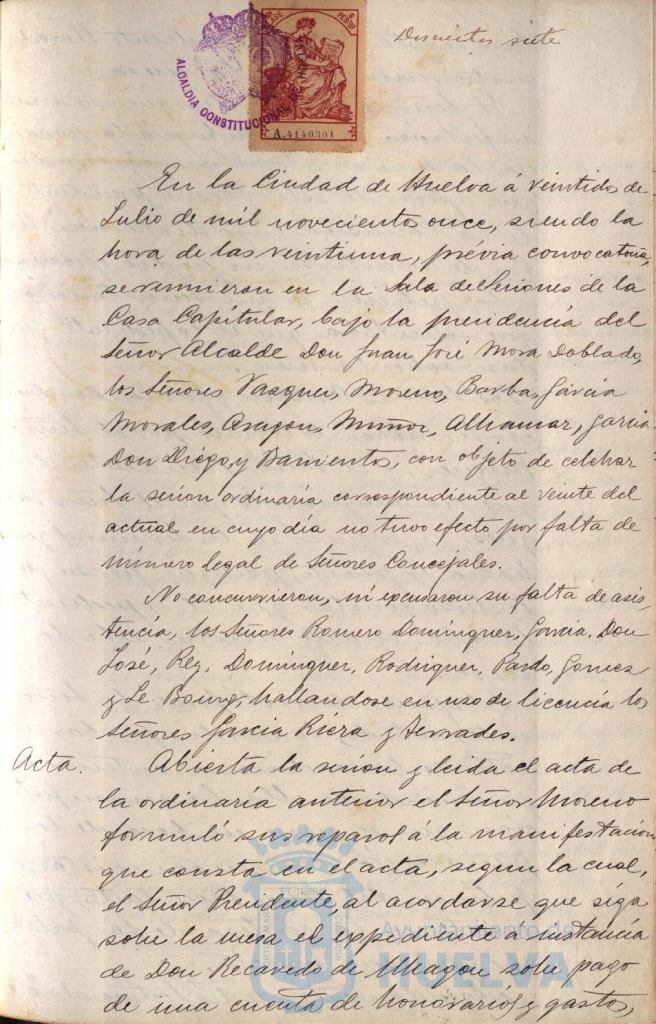 Doscientos siete
ALCALDIA CONSTITUCIONAL DE HUELVA
A.4140301
En la Ciudad de Huelva á veintidos de
Julio de mil novecientos once, siendo la
hora de las veintiuna, prévia convocatoria,
se reunieron en la Sala de Sesiones de la
Casa Capitular, bajo la presidencia del
Señor Alcalde Don Juan José Mora Doblado,
los Señores Vazquez, Moreno, Barba, García
Morales, Aragon, Muñoz, Alhamar, García
Don Diégo, y Barrientos, con objeto de celebrar
la sesion ordinaria correspondiente al veinte del
actual en cuyo día no tuvo efecto por falta de
número legal de Señores Concejales.
No concurrieron, ni excusaron su falta de asis
tencia, los Señores Romero Dominguez, García Don
José, Rey, Dominguez, Rodriguez, Pardo, Gomez
y Le Bourg, hallandose en uso de licencia los
Señores García Riera y Terrades.
Acta.
Abierta la sesion y leida el acta de
la ordinaria anterior el Señor Moreno
formuló sus reparos á la manifestacion
que consta en el acta, segun la cual,
el Señor Presidente, al acordarse que siga
sobre la mesa el expediente á instancia
de Don Recaredo de Uhagon sobre pago
de una cuenta de honorarios y gastos,
Ayuntamiento de
HUELVA